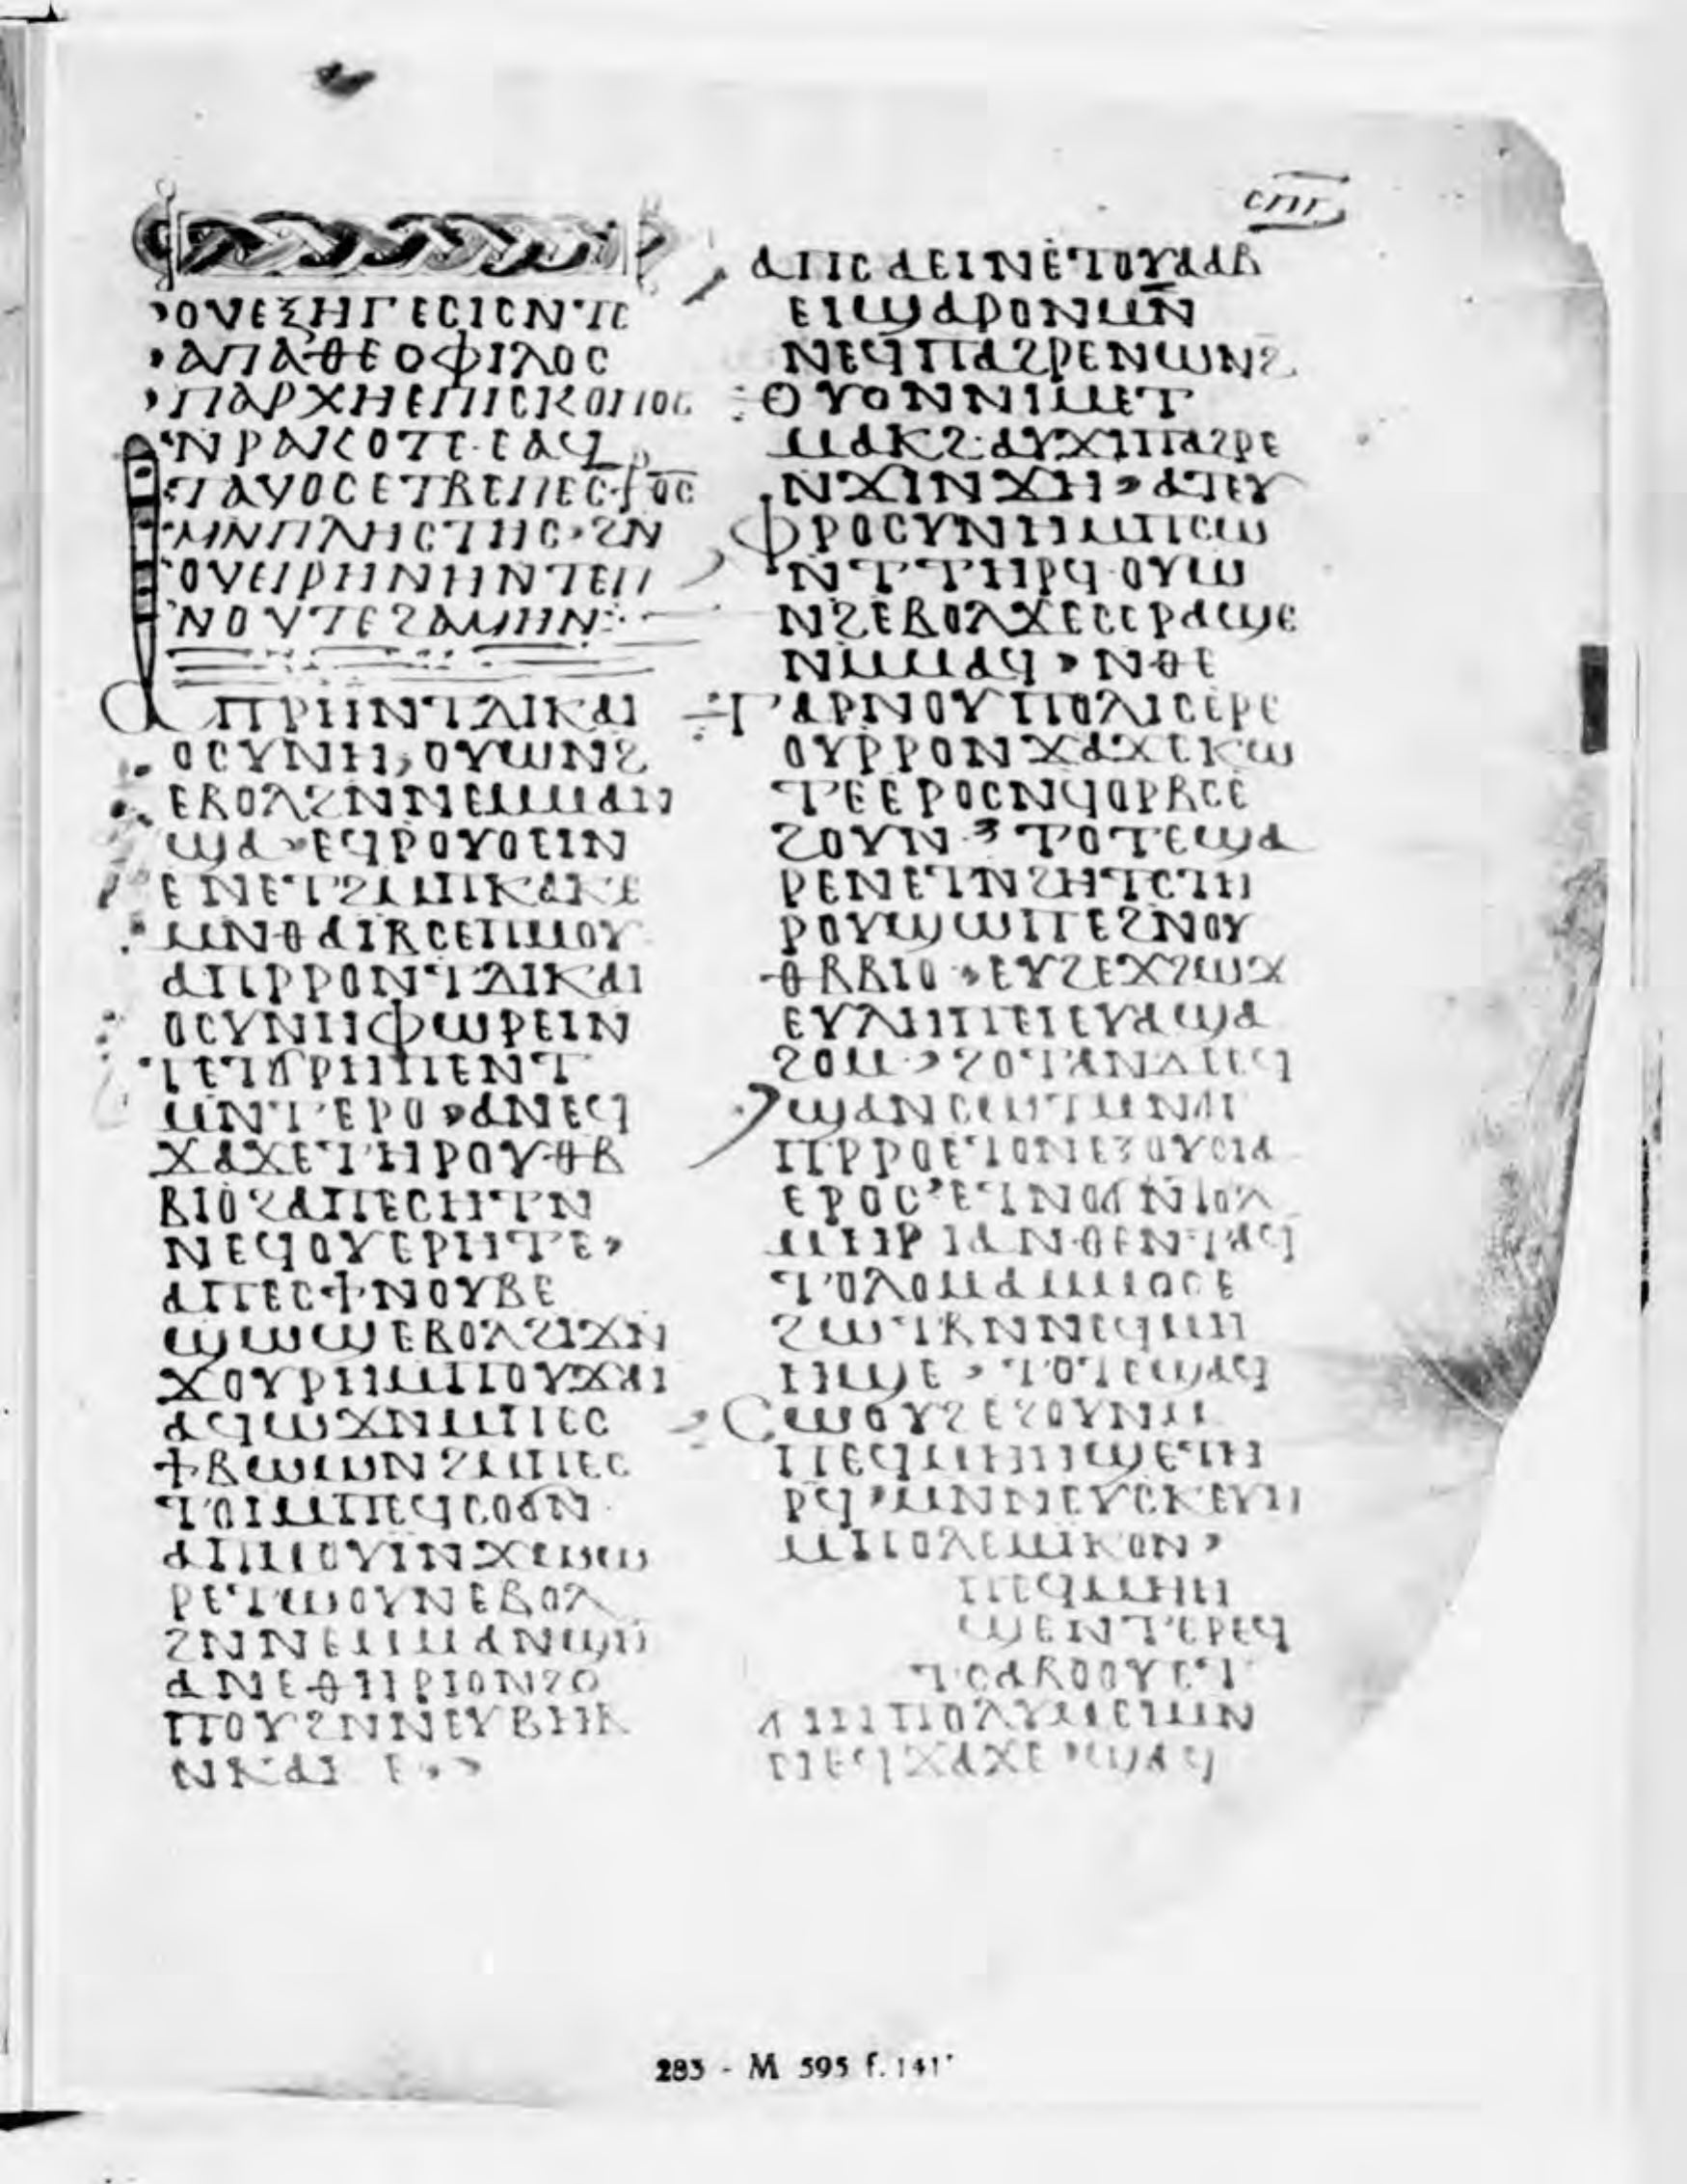 ⲥⲡⲅ
ⲟⲩⲉⲝⲏⲅⲉⲥⲓⲥⲛⲧⲉ
ⲁⲡⲁⲑⲉⲟⲫⲓⲗⲟⲥ
ⲡⲁⲣⲭⲏⲉⲡⲓⲥⲕⲟⲡⲟⲥ
ⲛⲣⲁⲕⲟⲧⲉ·ⲉⲁϥ
ⲧⲁⲩⲟⲥⲉⲧⲃⲉⲡⲉⲥϯⲟⲥ
ⲙⲛⲡⲗⲏⲥⲧⲏⲥ·ϩⲛ
ⲟⲩⲉⲓⲣⲏⲛⲏⲛⲧⲉⲡ
ⲛⲟⲩⲧⲉϩⲁⲙⲏⲛ
ⲁⲡⲣⲏⲛⲧⲇⲓⲕⲁⲓ
ⲟⲥⲩⲛⲏ,ⲟⲩⲱⲛϩ
ⲉⲃⲟⲗϩⲛⲛⲉⲙⲙⲁⲛ
ϣⲁ·ⲉϥⲣⲟⲩⲟⲉⲓⲛ
ⲉⲛⲉⲧϩⲙⲡⲕⲁⲕⲉ
ⲙⲛⲑⲁⲓⲃⲉⲥⲙⲡⲙⲟⲩ
ⲁⲡⲉⲣⲣⲟⲛⲧⲇⲓⲕⲁⲓ
ⲟⲥⲩⲛⲏⲫⲱⲣⲉⲓⲛ
ⲧⲉϭⲣⲏⲡⲉⲛⲧ
ⲙⲛⲧⲉⲣⲟ·ⲁⲛⲉϥ
ϫⲁϫⲉⲧⲏⲣⲟⲩⲑⲃ
ⲃⲓⲟϩⲁⲡⲉⲥⲏⲧⲛ
ⲛⲉϥⲟⲩⲉⲣⲏⲧⲉ·
ⲁⲡⲉⲥϯⲛⲟⲩⲃⲉ
ϣⲱϣⲉⲃⲟⲗϩⲓϫⲛ
ϫⲟⲩⲣⲏⲙⲡⲟⲩϫⲁⲓ
ⲁϥⲱϫⲛⲙⲡⲉⲥ
ϯⲃⲱⲱⲛϩⲙⲡⲉⲥ
ⲧⲟⲓⲙⲡⲉϥⲥⲟϭⲛ
ⲁⲡⲙⲟⲩⲓⲛϫⲱⲱ
ⲣⲉⲧⲱⲟⲩⲛⲉⲃⲟⲗ
ϩⲛⲛⲉⲙⲙⲁⲛϣⲁ
ⲁⲛⲉⲑⲏⲣⲓⲟⲛϩⲟ
ⲡⲟⲩϩⲛⲛⲉⲩⲃⲏⲃ
ⲛⲕⲁⲕⲉ·
ⲁⲡⲥⲁⲉⲓⲛⲉⲧⲟⲩⲁⲁⲃ
ⲉⲓϣⲁⲣⲟⲛⲙⲛ
ⲛⲉϥⲡⲁϩⲣⲉⲛⲱⲛϩ
ⲟⲩⲟⲛⲛⲓⲙⲉⲧ
ⲙⲁⲕϩ:ⲁⲩϫⲓⲡⲁϩⲣⲉ
ⲛϫⲓⲛϫⲏ·ⲁⲧⲉⲩ
ⲫⲣⲟⲥⲩⲛⲏⲙⲡⲥⲱ
ⲛⲧⲧⲏⲣϥ·ⲟⲩⲱ
ⲛϩⲉⲃⲟⲗϫⲉⲥⲉⲣⲁϣⲉ
ⲛⲙⲙⲁϥ·ⲛⲑⲉ
ⲅⲁⲣⲛⲟⲩⲡⲟⲗⲓⲥⲉⲣⲉ
ⲟⲩⲣⲣⲟⲛϫⲁϫⲉⲕⲱ
ⲧⲉⲉⲣⲟⲥⲛϥⲟⲣⲃⲥⲉ
ϩⲟⲩⲛ·ⲧⲟⲧⲉϣⲁ
ⲣⲉⲛⲉⲧⲛϩⲏⲧⲥⲧⲏ
ⲣⲟⲩϣⲱⲡⲉϩⲛⲟⲩ
ⲑⲃⲃⲓⲟ·ⲉⲩϩⲉϫϩⲱϫ
ⲉⲩⲗⲩⲡⲉⲓⲉⲩⲁϣⲁ
ϩⲟⲙ·ϩⲟⲧⲁⲛⲇⲉⲉϥ
ϣⲁⲛⲥⲱⲧⲙⲛϭⲓ
ⲡⲣⲣⲟⲉⲧⲟⲛⲉⲝⲟⲩⲥⲓⲁ
ⲉⲣⲟⲥ·ⲉⲧⲛⲟϭⲛⲡⲟⲗ
ⲧⲟⲗⲟⲙⲁⲙⲙⲟⲥⲉ
ϩⲱⲧⲃⲛⲛⲉϥⲙⲏ
ⲏϣⲉ·ⲧⲟⲧⲉϣⲁϥ
ⲥⲱⲟⲩϩⲉϩⲟⲩⲛⲙ
ⲡⲉϥⲙⲏⲏϣⲉⲧⲏ
ⲣϥ·ⲙⲛⲛⲉⲩⲥⲕⲉⲩⲏ
ⲙⲡⲟⲗⲉⲙⲓⲕⲟⲛ·
ⲡⲉϥⲙⲏⲏ
ϣⲉⲛⲧⲉⲣⲉϥ
ⲧⲥⲁⲃⲟⲟⲩⲉⲧ
ⲙⲡⲡⲟⲗⲩⲙⲉⲓⲙⲛ
ⲛⲉϥϫⲁϫⲉ·ϣⲁϥ
283 - M 595 f. 141